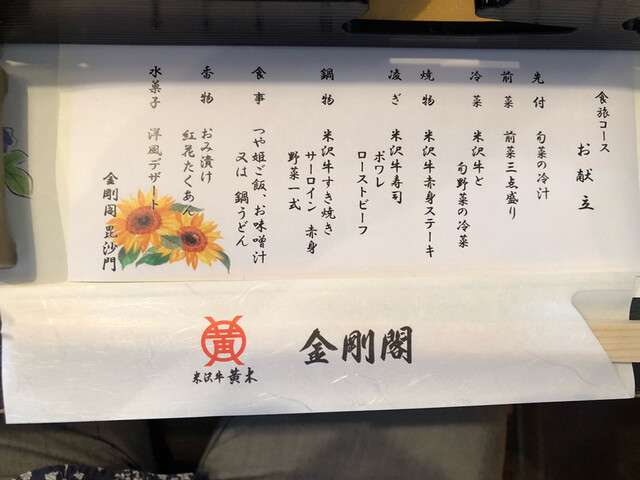 食旅コース
お献立
先付 旬菜の冷汁
前菜 前菜三点盛り
冷菜 米沢牛と
旬野菜の冷菜
焼物 米沢牛赤身ステーキ
凌ぎ 米沢牛寿司
ポワレ
ローストビーフ
鍋物 米沢牛すき焼き
サーロイン 赤身
野菜一式
食事 つや姫ご飯、お味噌汁
又は 鍋うどん
香物 おみ漬け
紅花たくあん
水菓子 洋風デザート
金剛閣 毘沙門
黄
米沢牛 黄木
金剛閣